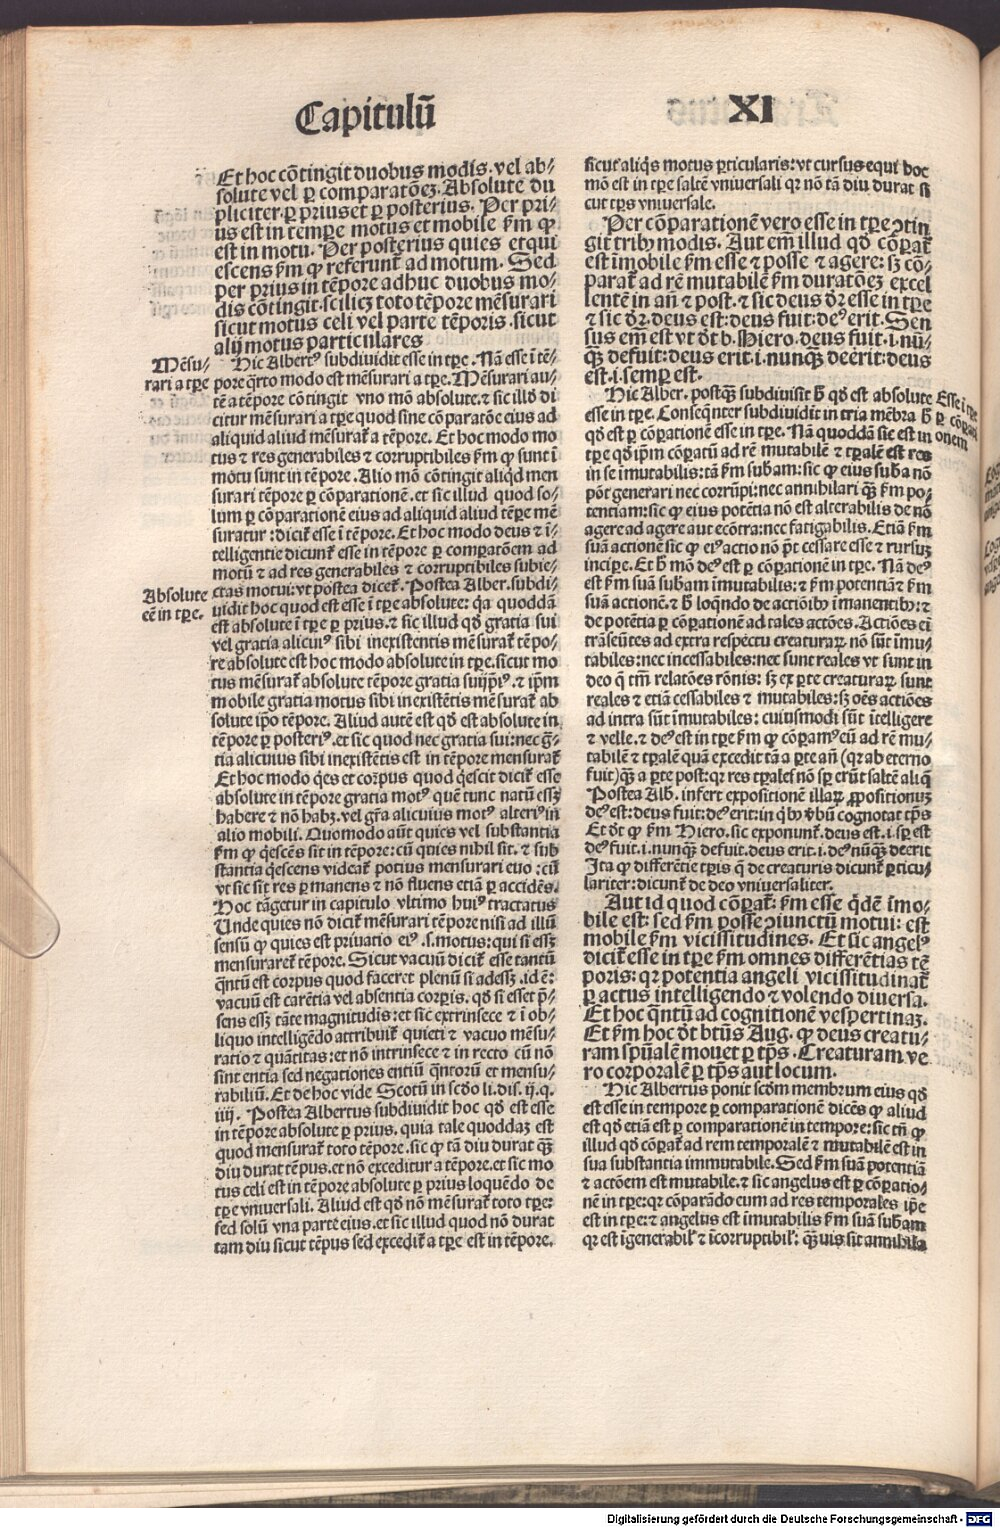 Capitulū XI
Et hoc cōtingit duobus modis. vel ab⸗
solute vel ꝑ comparatōeꝫ. Absolute du
pliciter. ꝑ prius et ꝑ posterius. Per pri⸗
us est in tempore motus et mobile ẜm ꝙ
est in motu. Per posterius quies et qui
escens ẜm ꝙ referunt᷑ ad motum. Sed
per prius in tēpore adhuc duobus mo⸗
dis cōtingit. scilicꝫ toto tēpore mēsurari
sicut motus celi vel parte tēporis. sicut
alij motus particulares
Mēsu⸗
rari a tꝑe
Hic Albertꝰ subdiuidit esse in tꝑe. Nā esse ī tē⸗
pore qrto modo est mēsurari a tꝑe. Mēsurari au⸗
tē a tēpore cōtingit vno mō absolute. ⁊ sic illd̓ di
citur mēsurari a tꝑe quod sine cōparatōe eius ad
aliquid aliud mēsurat᷑ a tēpore. Et hoc modo mo
tus ⁊ res generabiles ⁊ corruptibiles ẜm ꝙ sunt ī
motu sunt in tēpore. Alio mō cōtingit aliqd men
surari tēpore ꝑ cōparationē. et sic illud quod so⸗
lum ꝑ cōparationē eius ad aliquid aliud tēpe mē
suratur: dicit᷑ esse ī tēpore. Et hoc modo deus ⁊ ī⸗
telligentie dicunt᷑ esse in tēpore ꝑ comꝑatōem ad
motū ⁊ ad res generabiles ⁊ corruptibiles subie⸗
ctas motui: vt postea dicet᷑. Postea Alber. subdi⸗
Absolute
eē in tꝑe.
uidit hoc quod est esse ī tꝑe absolute: qa quoddā
est absolute ī tꝑe ꝑ prius. ⁊ sic illud qd̓ gratia sui
vel gratia alicuiꝰ sibi inexistentis mēsurat᷑ tēpo⸗
re absolute est hoc modo absolute in tꝑe. sicut mo
tus mēsurat᷑ absolute tēpore gratia suijpiꝰ. ⁊ ipm
mobile gratia motus sibi inexistētis mēsurat᷑ ab
solute ipo tēpore. Aliud autē est qd̓ est absolute in
tēpore ꝑ posteriꝰ. et sic quod nec gratia sui: nec g̅⸗
tia alicuius sibi inexistētis est in tēpore mensurat᷑
Et hoc modo qes et corpus quod qescit dicit᷑ esse
absolute in tēpore gratia motꝰ quē tunc natū essꝫ
habere ⁊ nō habꝫ. vel gr̄a alicuius motꝰ alteriꝰ in
alio mobili. Quomodo aūt quies vel substantia
ẜm ꝙ qescēs sit in tēpore: cū quies nihil sit. ⁊ sub
stantia qescens videat᷑ potius mensurari euo: cū
vt sic sit res ꝑmanens ⁊ nō fluens etiā ꝑ accidēs.
Hoc tāgetur in capitulo vltimo huiꝰ tractatus
Unde quies nō dicit᷑ mēsurari tēpore nisi ad illū
sensū ꝙ quies est priuatio eiꝰ .s. motus: qui si essꝫ
mensuraret᷑ tēpore. Sicut vacuū dicit᷑ esse tantū
qntū est corpus quod faceret plenū si adessꝫ. id ē:
vacuū est carētia vel absentia corpis. qd̓ si esset p̄⸗
sens essꝫ tāte magnitudis: et sic extrinsece ⁊ ī ob⸗
liquo intelligēdo attribuit᷑ quieti ⁊ vacuo mēsu⸗
ratio ⁊ quātitas: et nō intrinsece ⁊ in recto cū nō
sint entia sed negationes entiū qntorū et mensu⸗
rabiliū. Et de hoc vide Scotū in scd̓o li. dis. ij. q.
iiij. Postea Albertus subdiuidit hoc qd̓ est esse
in tēpore absolute ꝑ prius. quia tale quoddaꝫ est
quod mensurat᷑ toto tēpore. sic ꝙ tā diu durat qꝫ
diu durat tēpus. et nō exceditur a tēpore. et sic mo
tus celi est in tēpore absolute ꝑ prius loquēdo de
tꝑe vniuersali. Aliud est qd̓ nō mēsurat᷑ toto tꝑe:
sed solū vna parte eius. et sic illud quod nō durat
tam diu sicut tēpus sed excedit᷑ a tꝑe est in tēpore.
sicut aliqs motus ꝑticularis: vt cursus equi hoc
mō est in tꝑe saltē vniuersali qꝛ nō tā diu durat si
cut tꝑs vniuersale.
Per cōparationē vero esse in tꝑe ꝯtin
git tribꝫ modis. Aut em̄ illud qd̓ cōꝑat᷑
est īmobile ẜm esse ⁊ posse ⁊ agere: sꝫ cō⸗
parat᷑ ad rē mutabilē ẜm duratōeꝫ excel
lentē in an̄ ⁊ post. ⁊ sic deus dr̄ esse in tꝑe
⁊ sic dr̄. deus est: deus fuit: deꝰ erit. Sen
sus em̄ est vt dt̄ b. Hiero. deus fuit .i. nū⸗
qꝫ defuit: deus erit .i. nunqꝫ deerit: deus
est .i. semꝑ est.
Esse ī tꝑe
ꝑ cōꝑati
onem
Hic Alber. postqꝫ subdiuisit h̄ qd̓ est absolute
esse in tꝑe. Conseqnter subdiuidit in tria mēbra h̄
qd̓ est ꝑ cōꝑationē esse in tꝑe. Nā quoddā sic est in
tꝑe qd̓ ipm cōꝑatū ad rē mutabilē ⁊ tꝑalē est res
in se īmutabilis: tā ẜm subam: sic ꝙ eius suba nō
pōt generari nec corrūpi: nec annihilari qꝫ ẜm po⸗
tentiam: sic ꝙ eius potētia nō est alterabilis de nō
agere ad agere aut ecōtra: nec fatigabilis. Etiā ẜm
suā actionē sic ꝙ eiꝰ actio nō pt̄ cessare esse ⁊ rursuꝫ
incipe. Et h̄ mō deꝰ est ꝑ cōꝑationē in tꝑe. Nā deꝰ
est ẜm suā subam īmutabilis: ⁊ ẜm potentiā ⁊ ẜm
suā actionē. ⁊ h̄ loqndo de actiōibꝫ īmanentibꝫ: ⁊
de potētia ꝑ cōꝑationē ad tales actōes. Actiōes ei
trāseūtes ad extra respectu creaturaꝝ nō sūt īmu⸗
tabiles: nec incessabiles: nec sunt reales vt sunt in
deo q̄ tm̄ relatōes rōnis: sꝫ ex ꝑte creaturaꝝ sunt
reales ⁊ etiā cessabiles ⁊ mutabiles: sꝫ oēs actiōes
ad intra sūt īmutabiles: cuiusmodi sūt ītelligere
⁊ velle. ⁊ deꝰ est in tꝑe ẜm ꝙ cōꝑamꝰ eū ad rē mu⸗
tabilē ⁊ tꝑalē quā excedit tā a ꝑte an̄ (qꝛ ab eterno
fuit) qꝫ a ꝑte post: qꝛ res tꝑales nō sꝑ erūt saltē aliq̄
Postea Alb. infert expositionē illaꝝ ꝓpositionuꝫ
deꝰ est: deus fuit: deꝰ erit: in qbꝫ vbū cognotat tꝑs
Et dt̄ ꝙ ẜm Hiero. sic exponunt᷑. deus est .i. sꝑ est
deꝰ fuit .i. nunqꝫ defuit. deus erit .i. deꝰ nūqꝫ deerit
Ita ꝙ differētie tꝑis q̄ de creaturis dicunt᷑ ꝑticu⸗
lariter: dicunt᷑ de deo vniuersaliter.
Aut id quod cōꝑat᷑: ẜm esse qdē īmo⸗
bile est: sed ẜm posse ꝯiunctū motui: est
mobile ẜm vicissitudines. Et sic angelꝰ
dicit᷑ esse in tꝑe ẜm omnes differētias tē
poris: qꝛ potentia angeli vicissitudinat᷑
ꝑ actus intelligendo ⁊ volendo diuersa.
Et hoc qntū ad cognitionē vespertinaꝫ.
Et ẜm hoc dt̄ btūs Aug. ꝙ deus creatu⸗
ram spūalē mouet ꝑ tꝑs. Creaturam ve
ro corporalē ꝑ tꝑs aut locum.
Hic Albertus ponit scd̓m membrum eius qd̓
est esse in tempore ꝑ comparationē dicēs ꝙ aliud
est qd̓ etiā est ꝑ comparationē in tempore: sic tn̄ ꝙ
illud qd̓ cōꝑat᷑ ad rem temporalē ⁊ mutabilē est in
sua substantia immutabile. Sed ẜm suā potentiā
⁊ actōem est mutabile. ⁊ sic angelus est ꝑ cōꝑatio⸗
nē in tꝑe: qꝛ comparādo eum ad res temporales ipe
est in tꝑe: ⁊ angelus est īmutabilis ẜm suā subam
qꝛ est īgenerabil᷑ ⁊ īcorruptibil᷑: qꝫuis sit annihila
Digitalisierung gefördert durch die Deutsche Forschungsgemeinschaft - DFG